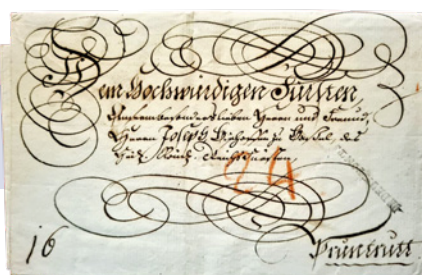 Dem Hochwürdigen Fürsten
Unserm besonders lieben Herrn und Freund,
Herrn Joseph Bischoffen zu Basel des
Heil. Röm. Reichs Fürsten
24
16
Pruntrutt